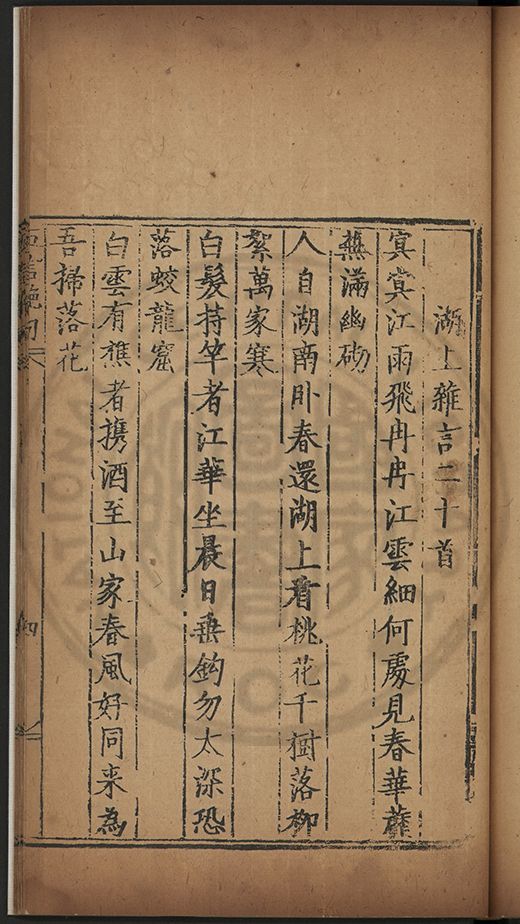 湖上雜言二十首
冥冥江雨飛冉冉江雲細何處見春華蘼
蕪滿幽砌
人自湖南卧春還湖上看桃花千樹落柳
絮萬家寒
白髮持竿者江華坐晨日垂鈎勿太深恐
落蛟龍窟
白雲有樵者携酒至山家春風好同来為
吾掃落花
四